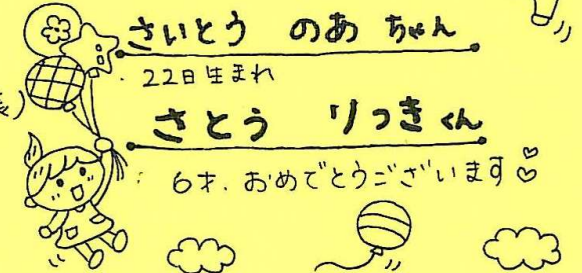 さいとう のあ ちゃん
22日生まれ
さとう りつき くん
6才、おめでとうございます♡♡